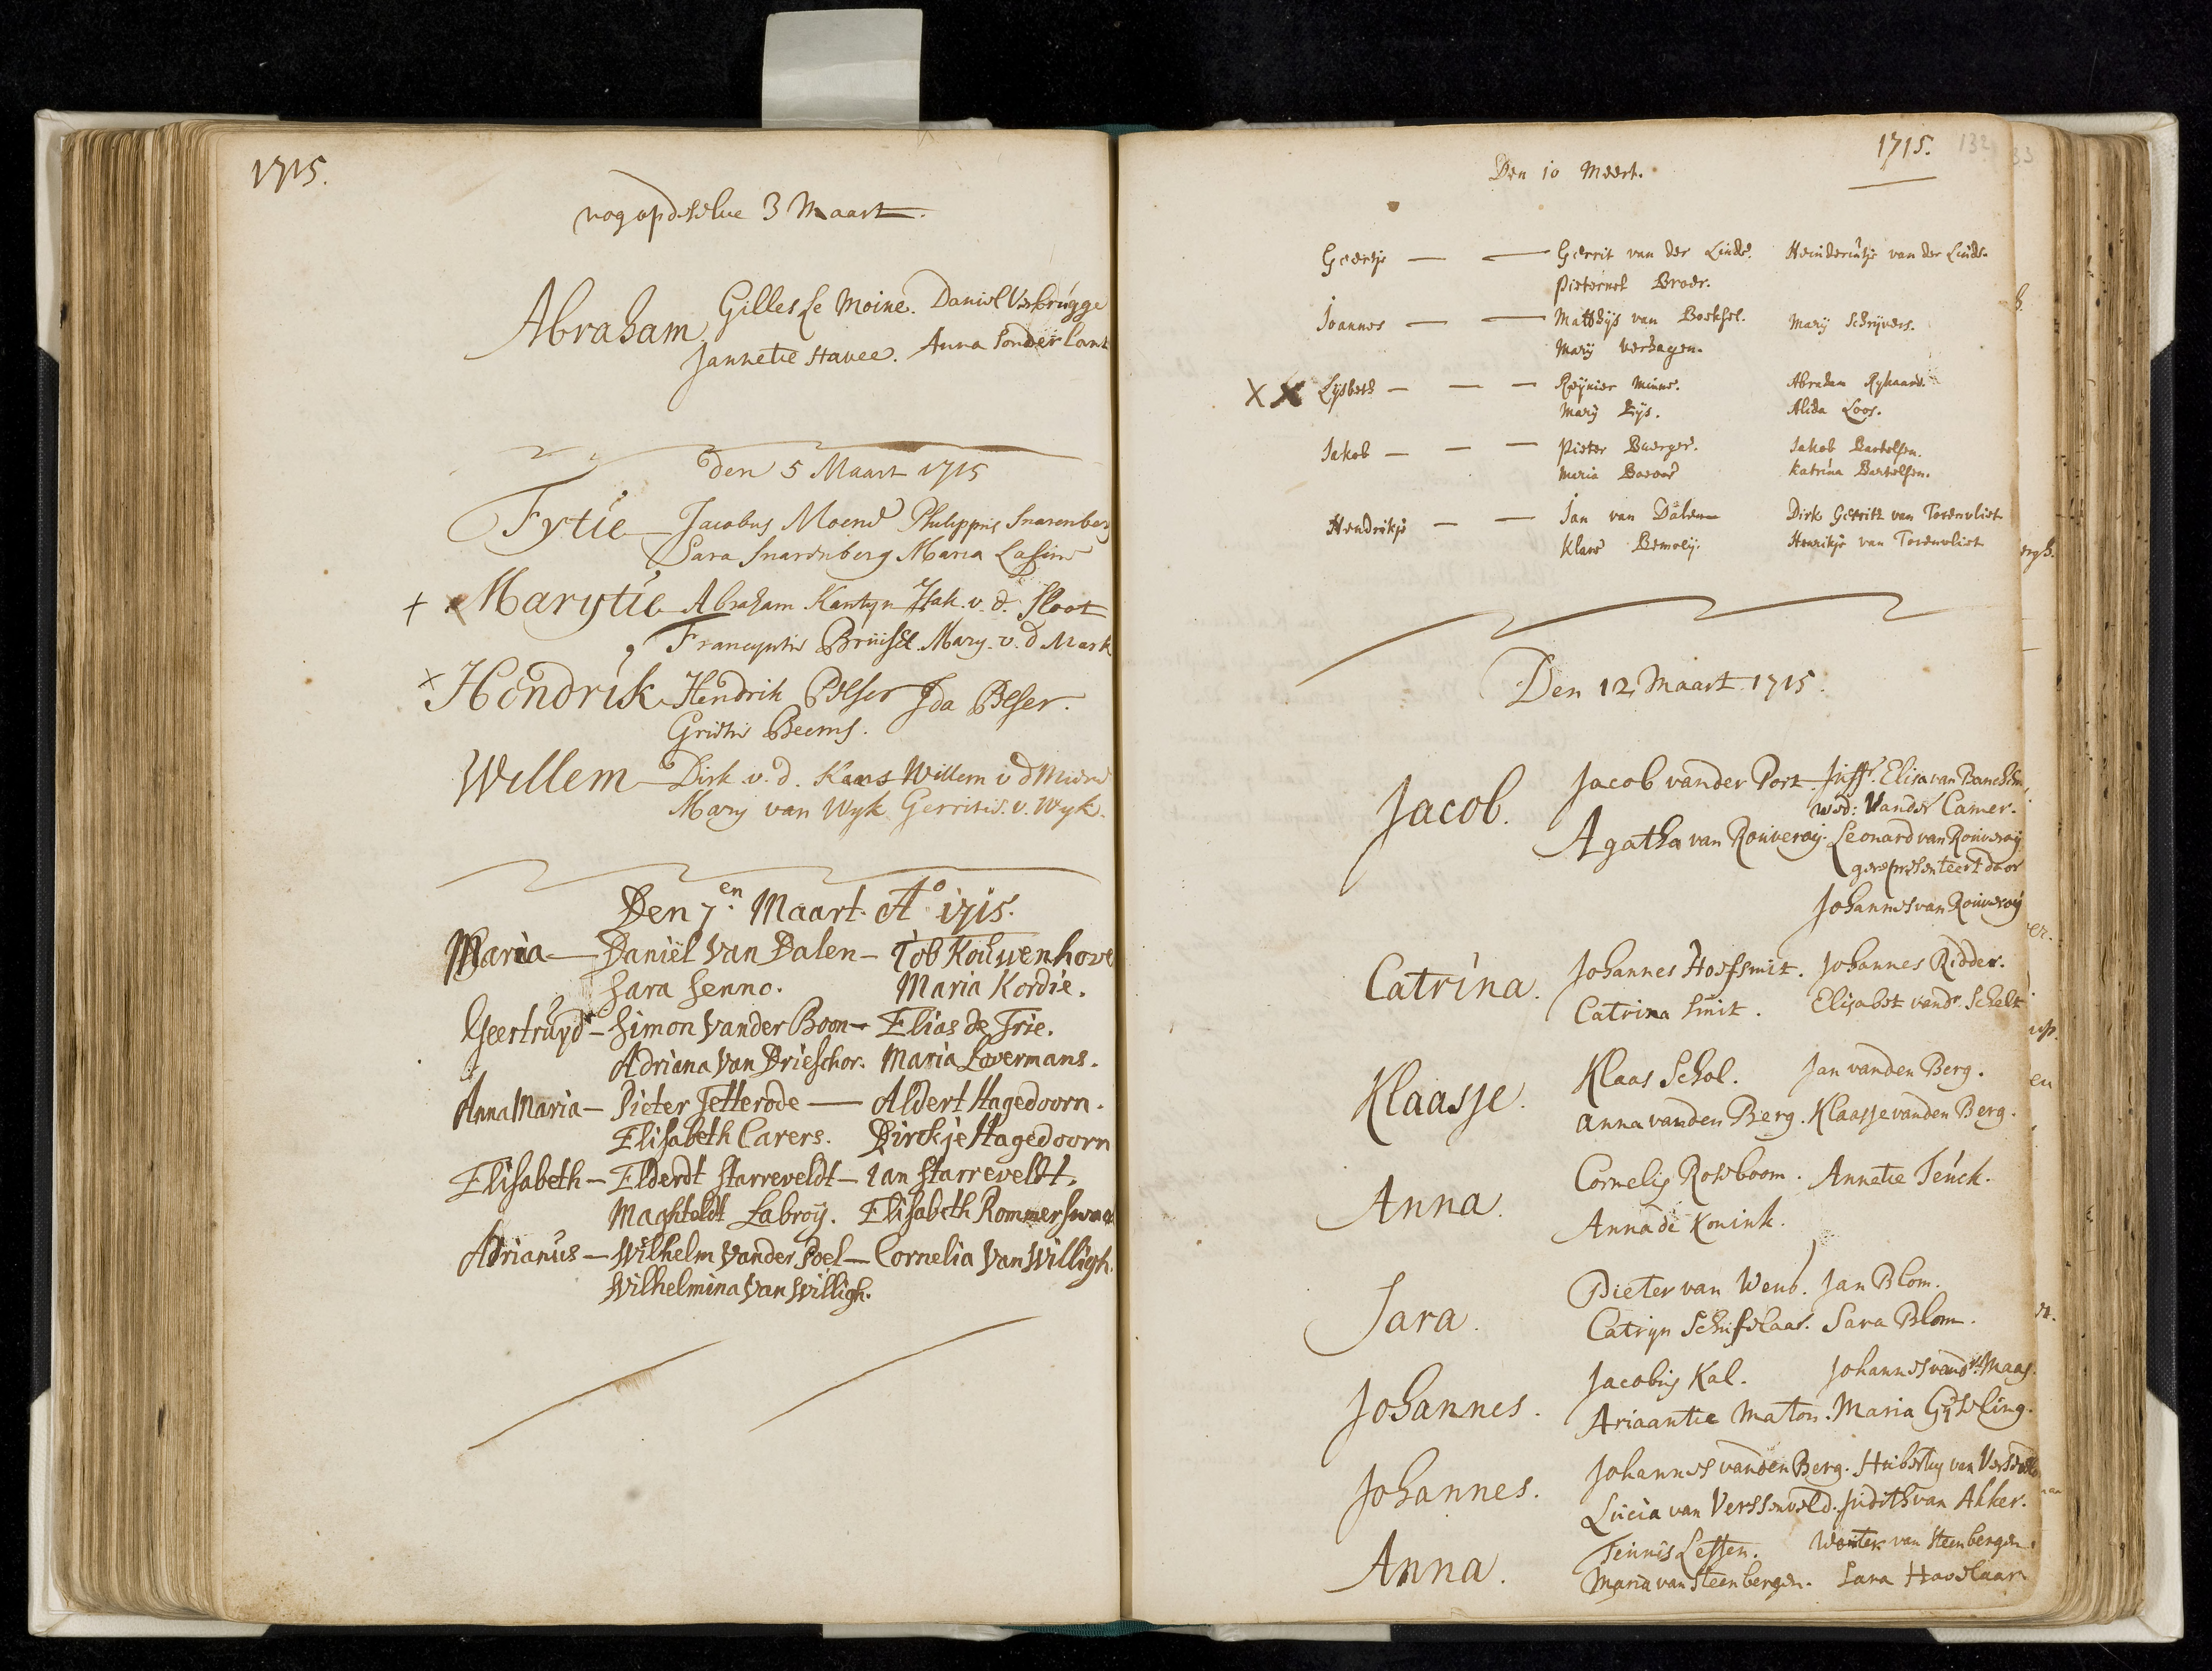 1715.
nog op deselve 3 Maart.
Abraham Gilles Le Moine. Daniel Verbrugge
Jannetie Havee. Anna Sonderlant
den 5 Maart 1715
Fytie Jacobus Moene Philippus Snarenberg
Sara Snarenberg Maria
+ x Marytie Abraham Kantyn Isak. v. d. Sloot
Francyntie Bruisel. Mary. v. d Mark
x Hendrik Hendrik Pelser Ida Pelser.
Grietie Beems.
Willem Dirk v. d. Kaas Willem v d
Mary van Wyk Gerritie. v. Wyk.
Den 7.en Maart. Ao 1715.
Maria — Daniël Van Dalen — Job Kouwenhove
Sara Senno. Maria Kordie.
Geertruyd — Simon Vander Boon — Elias de Frie.
Adriana Van Drieschor. Maria Lovermans.
Anna Maria — Pieter Tetterode — Aldert Hagedoorn.
Elisabeth Carers. Dirckje Hagedoorn
Elisabeth — Elderdt Starreveldt — Ian Starreveldt.
Maghteldt Labroij. Elisabeth Rommerswaa
Adrianus — Wilhelm Vander Poel — Cornelia Van Willigh.
Wilhelmina Van Willigh.
1715. 132
Den 10 Meert.
Geertje — — Gerrit van der Linde. van der Linde.
Pieternel Broer.
Joannes — — Matthijs van Boeksel. Marij Schrijvers.
Marij Verhagen.
X X Lijsbeth — — — Reijnier Minne. Abraham Rykaard.
Marij Lijs. Alida Loos.
Jakob — — — Pieter Buerger. Jakob Bartelsen.
Maria Katrina Bartelsen.
Hendrikje — — Jan van Dalen Dirk Gerritz van Torenvliet
Klara Bemoeij. Henrikje van Torenvliet
Den 12 Maart 1715.
Jacob. Jacob vander Port. Juffr. Elisa van Banchem
wed: Vander Camer.
Agatha van Rouveroij. Leonard van Rouveroij
gerepresenteert door
Johannes van Rouveroij
Catrina. Johannes Hoefsmit. Johannes Ridder.
Catrina Smit. Elisabet vandr. Schelt
Klaasje. Klaas Schol. Jan vanden Berg.
Anna vanden Berg. Klaasje vanden Berg.
Anna. Cornelis Roseboom. Annetie Tenck.
Anna de Konink.
Sara. Pieter van Wend. Jan Blom.
Catryn Schifelaar. Sara Blom.
Johannes. Jacobus Kal. Johannes vandr. Maas.
Ariaantie Maton. Maria Gyseling.
Johannes. Johannes vanden Berg. Hubertus van
Lucia van Verssenveld. Judith van Akker.
Anna. Teunis Letten. Wouter van Steenbergen.
Maria van Steenbergen. Sara Haselaar